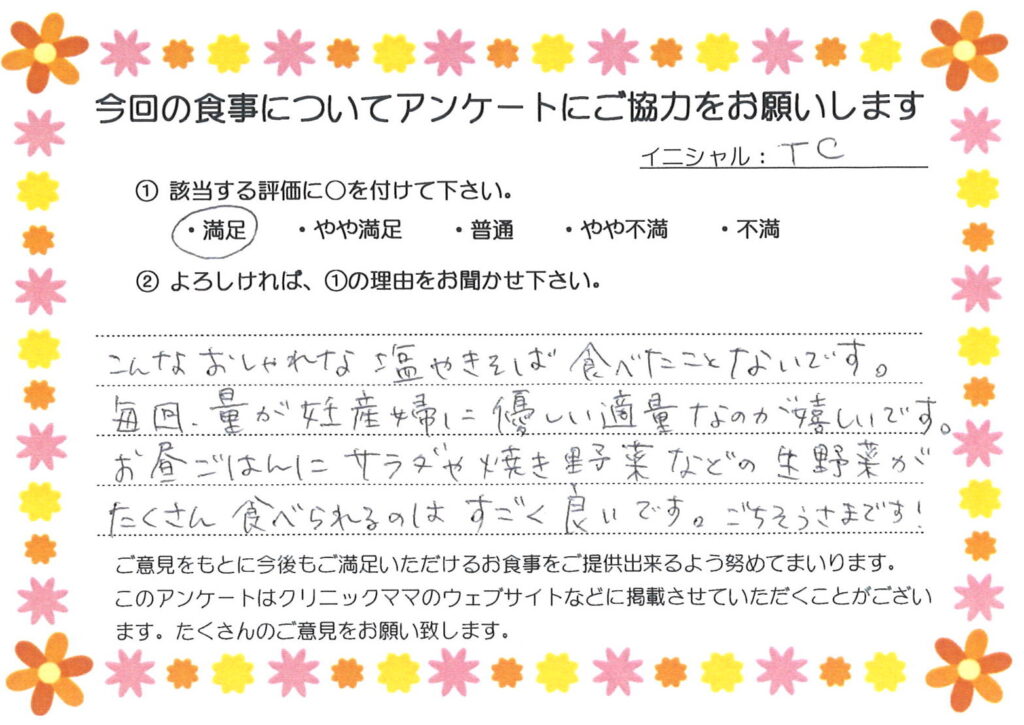 今回の食事についてアンケートにご協力をお願いします
イニシャル： TC
① 該当する評価に○を付けて下さい。
・満足 ・やや満足 ・普通 ・やや不満 ・不満
② よろしければ、①の理由をお聞かせ下さい。
こんなおしゃれな塩やきそば食べたことないです。
毎回、量が妊産婦に優しい適量なのが嬉しいです。
お昼ごはんにサラダや焼き野菜などの生野菜が
たくさん食べられるのはすごく良いです。ごちそうさまです!
ご意見をもとに今後もご満足いただけるお食事をご提供出来るよう努めてまいります。
このアンケートはクリニックママのウェブサイトなどに掲載させていただくことがござい
ます。たくさんのご意見をお願い致します。